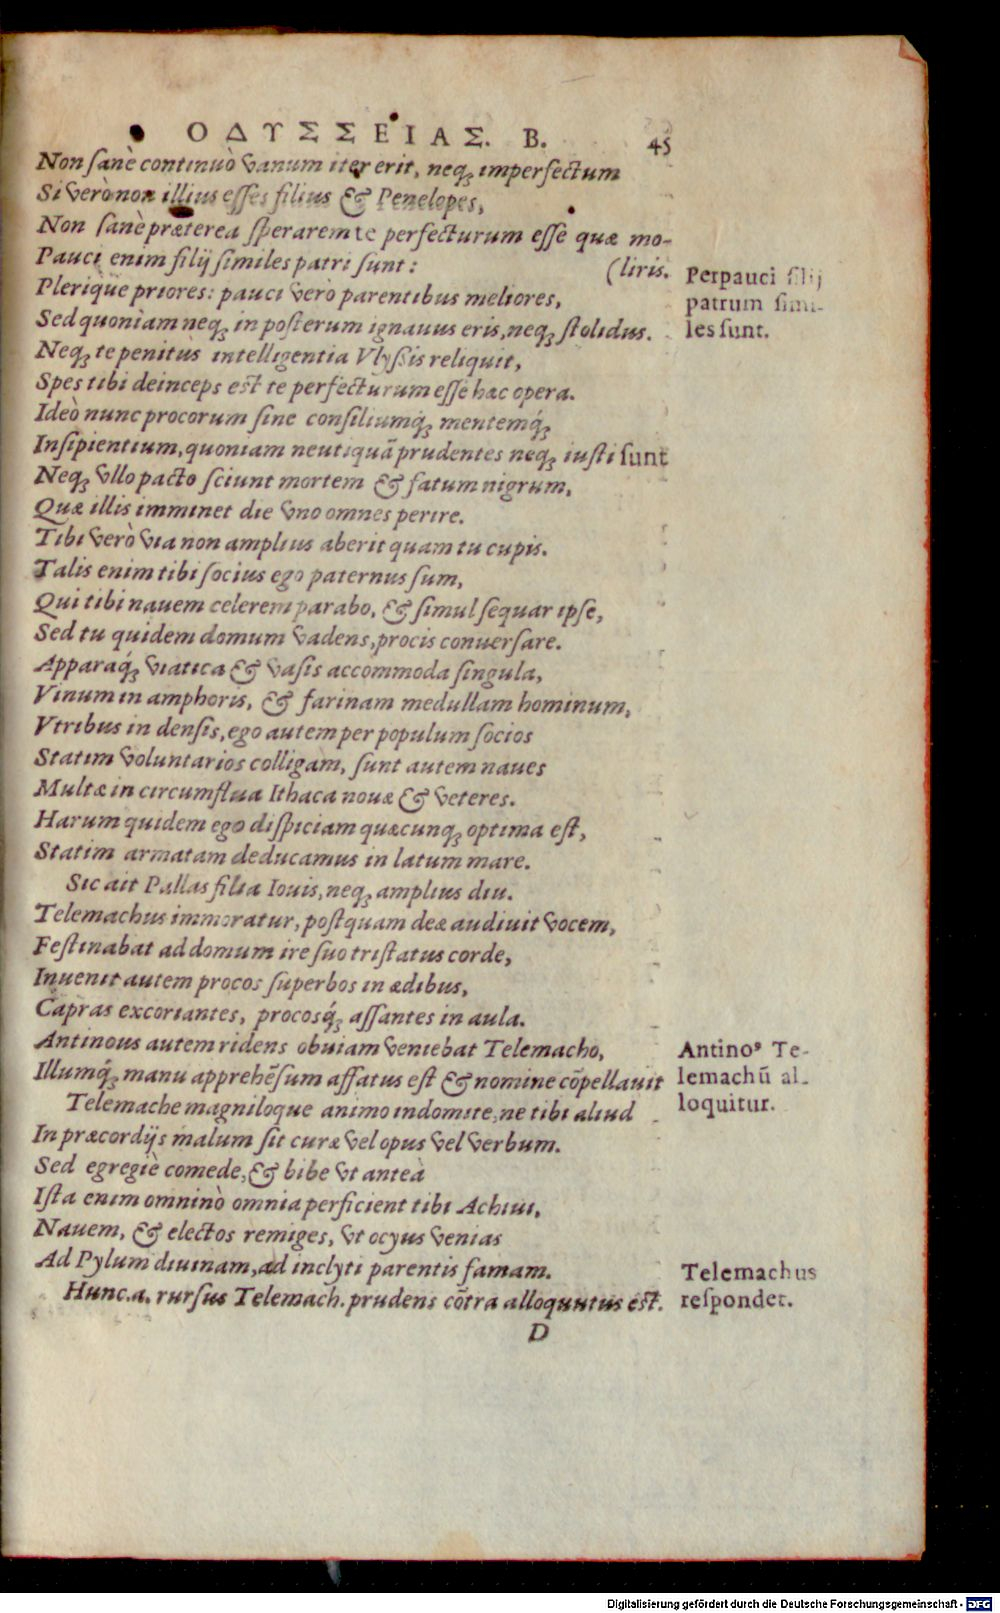 ΟΔΥΣΣΕΙΑΣ. Β. 45
Non sanè continuò vanum iter erit, neq; imperfectum
Si verò non illius esses filius & Penelopes,
Non sanè præterea sperarem te perfecturum esse quæ mo-
Pauci enim filij similes patri sunt: (liris.
Perpauci filij
patrum simi-
les sunt.
Plerique priores: pauci verò parentibus meliores,
Sed quoniam neq; in posterum ignauus eris, neq; stolidus.
Neq; te penitùs intelligentia Vlyssis reliquit,
Spes tibi deinceps est te perfecturum esse hæc opera.
Ideò nunc procorum sine consiliumq́; mentemq́;
Insipientium, quoniam neutiquã prudentes neq; iusti sunt
Neq; vllo pacto sciunt mortem & fatum nigrum,
Quæ illis imminet die vno omnes perire.
Tibi verò via non amplius aberit quam tu cupis.
Talis enim tibi socius ego paternus sum,
Qui tibi nauem celerem parabo, & simul sequar ipse,
Sed tu quidem domum vadens, procis conuersare.
Apparaq́; viatica & vasis accommoda singula,
Vinum in amphoris, & farinam medullam hominum,
Vtribus in densis, ego autem per populum socios
Statim voluntarios colligam, sunt autem naues
Multæ in circumflua Ithaca nouæ & veteres.
Harum quidem ego dispiciam quæcunq; optima est,
Statim armatam deducamus in latum mare.
Sic ait Pallas filia Iouis, neq; amplius diu.
Telemachus immoratur, postquam deæ audiuit vocem,
Festinabat ad domum ire suo tristatus corde,
Inuenit autem procos superbos in ædibus,
Capras excoriantes, procosq́; assantes in aula.
Antinous autem ridens obuiam veniebat Telemacho,
Illumq́; manu apprehẽsum affatus est & nomine cõpellauit
Antinoꝰ Te-
lemachũ al-
loquitur.
Telemache magniloque animo indomite, ne tibi aliud
In præcordijs malum sit curæ vel opus vel verbum.
Sed egregiè comede, & bibe vt anteà
Ista enim omninò omnia perficient tibi Achiui,
Nauem, & electos remiges, vt ocyus venias
Ad Pylum diuinam, ad inclyti parentis famam.
Hunc.a. rursus Telemach. prudens cõtra alloquutus est.
Telemachus
respondet.
D
Digitalisierung gefördert durch die Deutsche Forschungsgemeinschaft - DFG